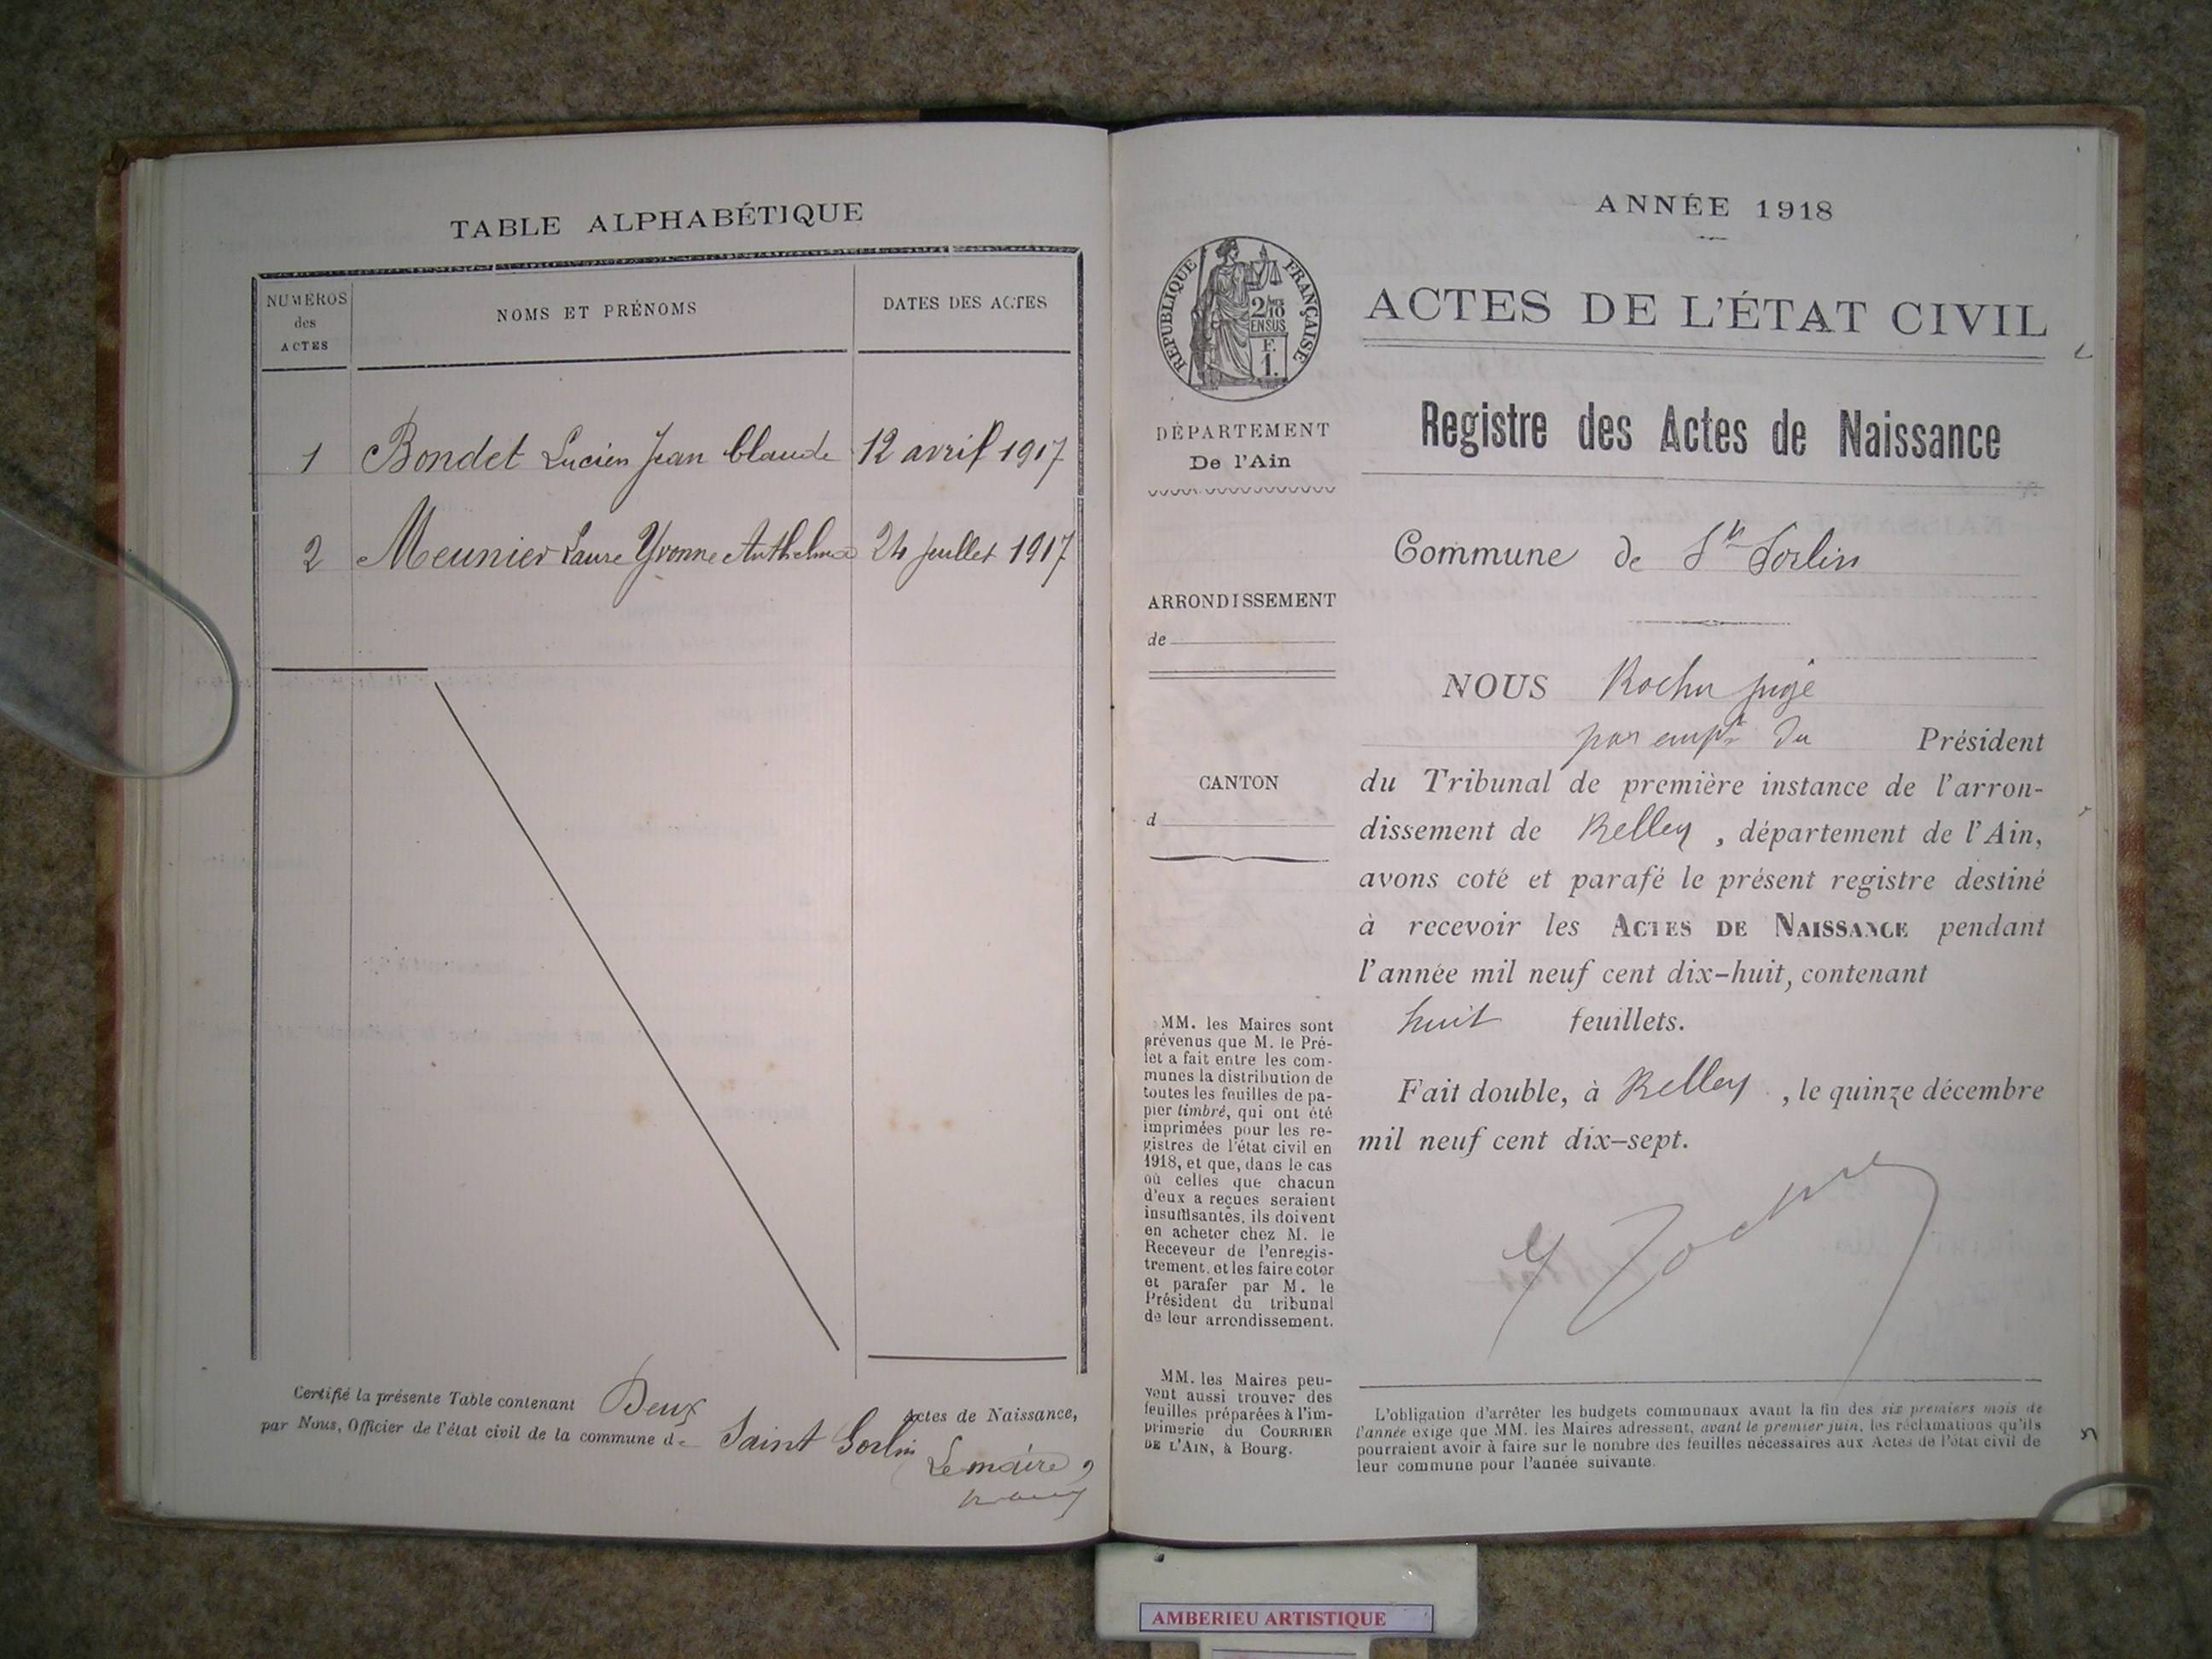 TABLE ALPHABÉTIQUE
NUMEROS
des
ACTES
NOMS ET PRÉNOMS
DATES DES ACTES
1 Bondet Lucien Jean Claude 12 avril 1917
2 Meunier Laure Yvonne Anthelmie 24 juillet 1917
Certifié la présente Table contenant Deux Actes de Naissance,
par Nous, Officier de l'état civil de la commune de Saint Sorlin
Le maire
ANNÉE 1918
RÉPUBLIQUE FRANÇAISE
2/10
EN SUS
F.
1.
ACTES DE L'ÉTAT CIVIL
DÉPARTEMENT
De l'Ain
ARRONDISSEMENT
de
CANTON
d
MM. les Maires sont
prévenus que M. le Pré-
fet a fait entre les com-
munes la distribution de
toutes les feuilles de pa-
pier timbré, qui ont été
imprimées pour les re-
gistres de l'état civil en
1918, et que, dans le cas
où celles que chacun
d'eux a reçues seraient
insuffisantes, ils doivent
en acheter chez M. le
Receveur de l'enregis-
trement, et les faire coter
et parafer par M. le
Président du tribunal
de leur arrondissement.
MM. les Maires peu-
vent aussi trouver des
feuilles préparées à l'im-
primerie du COURRIER
DE L'AIN, à Bourg.
Registre des Actes de Naissance
Commune de St Sorlin
NOUS Rocher juge
par empt du Président
du Tribunal de première instance de l'arron-
dissement de Belley, département de l'Ain,
avons coté et parafé le présent registre destiné
à recevoir les ACTES DE NAISSANCE pendant
l'année mil neuf cent dix-huit, contenant
huit feuillets.
Fait double, à Belley, le quinze décembre
mil neuf cent dix-sept.
L'obligation d'arrêter les budgets communaux avant la fin des six premiers mois de
l'année exige que MM. les Maires adressent, avant le premier juin, les réclamations qu'ils
pourraient avoir à faire sur le nombre des feuilles nécessaires aux Actes de l'état civil de
leur commune pour l'année suivante.
AMBERIEU ARTISTIQUE